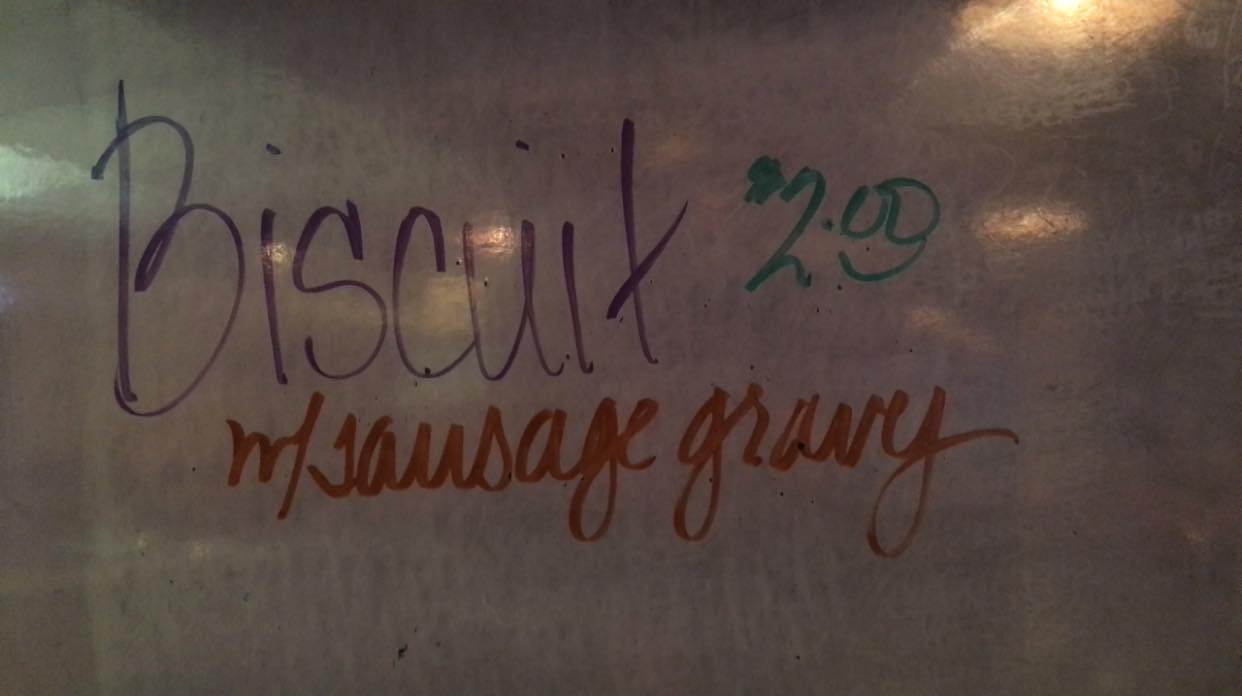 Biscuit $2.00
w/sausage gravy